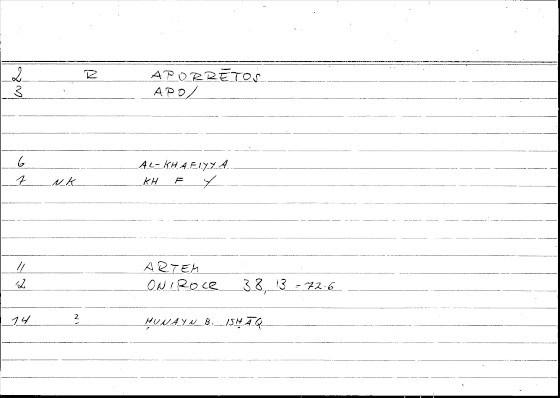 2 R APORRĒTOS
3 APO/
6 AL-KHAFIYYA
7 NK KH F Y
11 ARTEM
12 ONIROCR 38, 13 - 72.6
14 ? ḤUNAYN B. ISḤĀQ